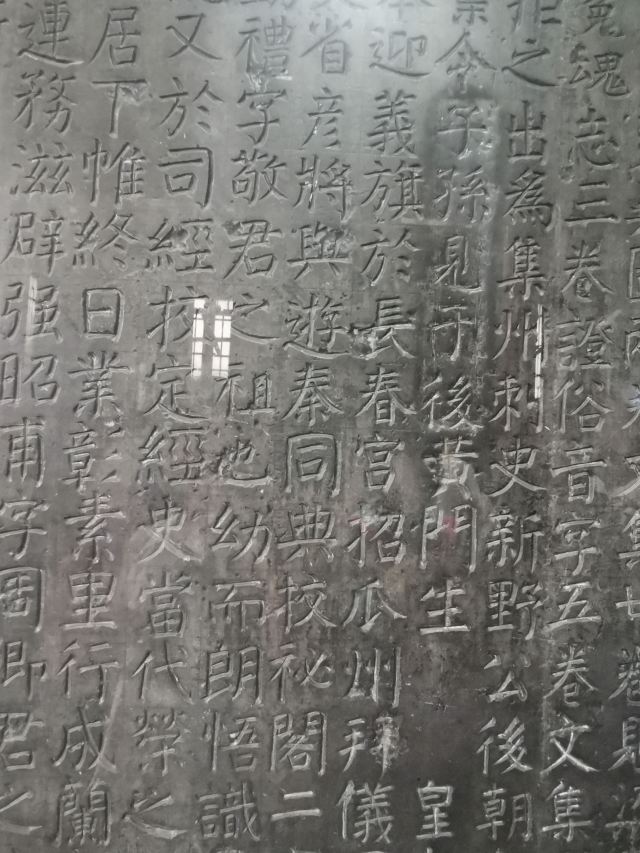 文集廿卷見
冤魂志三卷證俗音字五卷文集
之出為集州刺史新野公後朝
令子孫見于後黃門生 皇
迎義旗於長春宮招瓜州拜儀
省彥將與遊秦同典校祕閣二
禮字敬君之祖也幼而朗悟識
又於司經校定經史當代榮之
居下帷終日業彰素里行成蘭
連務滋辟强昭甫字周即君之